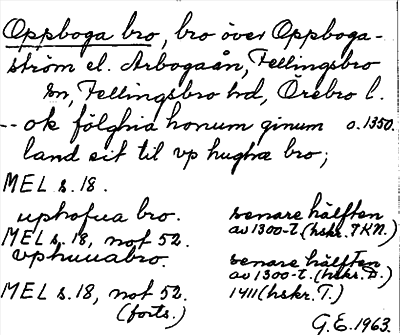 Oppboga bro, bro över Oppboga-
ström el. Arbogaån, Fellingsbro
sn, Fellingsbro hd, Örebro l.
-- ok fölghia honum ginum o. 1350.
land sit til vp hughæ bro;
MEL s. 18.
uphofua bro. senare hälften
av 1300-t. (hskr. 7KN.)
MEL s. 18, not 52.
vphuuabro. senare hälften
av 1300-t. (hskr. D.)
MEL s. 18, not 52. 1411 (hskr. T.)
(forts.)
G.E. 1963.